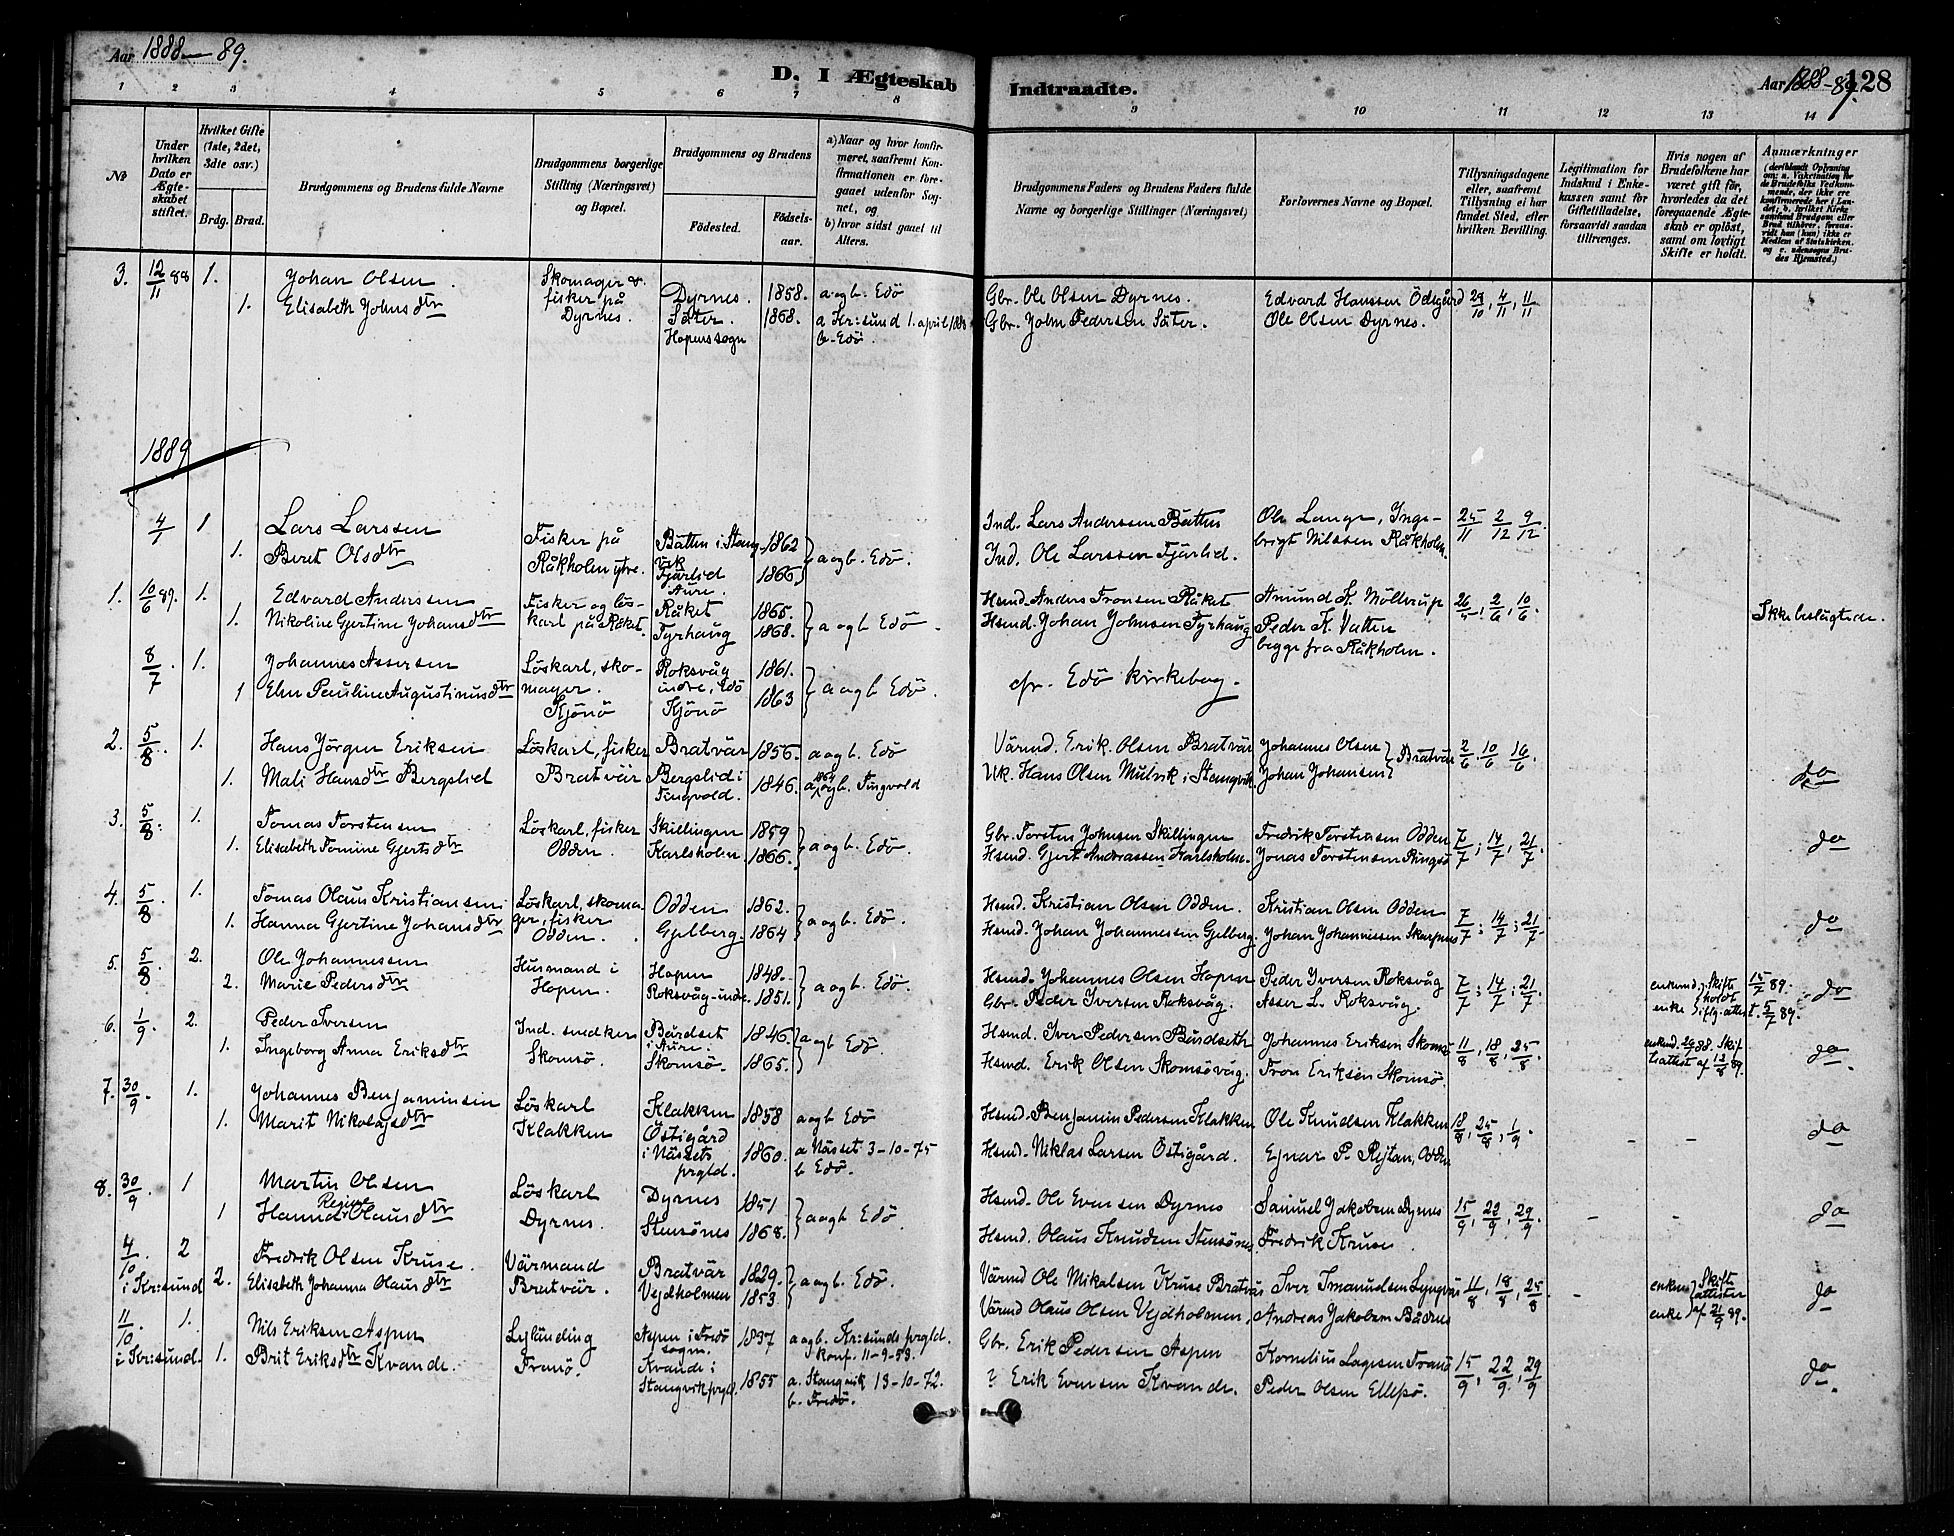 Aar 1888-89.
D. I Ægteskab Indtraadte.
Aar 1888-89. 128
1 2 3 4 5 6 7 8 9 10 11 12 13 14
No
Under hvilken Dato er Ægteskabet stiftet.
Hvilket Gifte (1ste, 2det, 3die osv.)
Brdg. Brud.
Brudgommens og Brudens fulde Navne
Brudgommens borgerlige Stilling (Næringsvei) og Bopæl.
Brudgommens og Brudens
Fødested. Fødselsaar.
a) Naar og hvor konfirmeret, saafremt Konfirmationen er foregaaet udenfor Sognet, og
b) hvor sidst gaaet til Alters.
Brudgommens Faders og Brudens Faders fulde Navne og borgerlige Stillinger (Næringsvei)
Forlovernes Navne og Bopæl.
Tillysningsdagene eller, saafremt Tillysning ei har fundet Sted, efter hvilken Bevilling.
Legitimation for Indskud i Enkekassen samt for Giftetilladelse, forsaavidt saadan tiltrænges.
Hvis nogen af Brudefolkene har været gift før, hvorledes da det foregaaende Ægteskab er opløst, samt om lovligt Skifte er holdt.
Anmærkninger
3. 12/11 88 1. Johan Olsen Skomager & fisker på Dyrnes. Dyrnes. 1858. a og b. Edö Gbr. Ole Olsen Dyrnes. Edvard Hanssen Ödegård 28/10, 4/11, 11/11
1. Elisabeth Johnsdtr Säter. Hopens sogn 1868. a Kr:sund 1. april b. Edö. Gbr. John Pedersen Säter. Ole Olsen Dyrnes.
1889
4/1 1 Lars Larssen Fisker på Råkholm ytre. Båtten i Stangvik 1862 a og b. Edö. Ind. Lars Anderssen Båtten Ole Lange, Ingebrigt Nilssen Råkholm. 25/11 2/12 9/12
1. Beret Olsdtr Fjärlid i Aure. 1866 Ind. Ole Larssen Fjärlid.
1. 10/6 89. 1. Edvard Anderssen Fisker og löskarl på Råket. Råket 1865. a og b Edö. Hsmd. Anders Fronsen Råket Amund A. Möllerup 26/5, 2/6, 10/6 Ikke beslägtede.
1. Nikoline Gjertine Johansdtr Tyrhaug 1868. Hsmd. Johan Johnsen Tyrhaug Peder K. Vatten begge fra Råkholm.
8/7 1. Johannes Assersen Löskarl, skomager. Kjönö Roksvåg indre, Edö 1861. a og b Edö. cfr. Edö kirkebog.
1 Elen Pauline Augustinusdtr Kjönö 1863
2. 5/8 1. Hans Jörgen Eriksen Löskarl, fisker Bratvär Bratvär 1856. a og b. Edö Värmd. Erik Olsen Bratvär Johannes Olsen } Bratvär 2/6 10/6 16/6 do
1. Mali Hansdtr Bergslid Bergslid i Tingvold. 1846. a og b. Tingvold Hans Olsen Mulvik i Stangvik Johan Johansen
3. 5/8 1. Tomas Torstensen Löskarl, fisker Odden. Skillingen 1859 a og b. Edö. Gbr. Torsten Johnsen Skillingen Fredrik Torstensen Odden 7/7; 14/7, 21/7. do
1. Elisabeth Tomine Gjertsdtr Karlsholm 1866. Hsmd. Gjert Andreassen Karlsholm. Jonas Torstensen Ringsö
4. 5/8 1. Tomas Olaus Kristiansen Löskarl, skomager, fisker Odden. Odden 1862. a og b. Edö. Hsmd. Kristian Olsen Odden. Kristian Olsen Odden 7/7; 14/7; 21/7. do
1. Hanna Gjertine Johansdtr Gjelberg. 1864 Hsmd. Johan Johannessen Gjelberg. Johan Johannessen Skarpnes
5. 5/8 2. Ole Johannessen Husmand i Hopen. Hopen 1848. a og b. Edö. Hsmd. Johannes Olsen Hopen Peder Iversen Roksvåg 7/7; 14/7; 21/7. enkmd. } Skifte holdt 15/7 89. do
2. Marie Pedersdtr Roksvåg-indre 1851. Gbr. Peder Iversen Roksvåg. Asser L. Roksvåg. enke } iflg. attest. 5/7 89.
6. 1/9 2. Peder Iversen Ind. snedker Skomsö. Bårdset i Aure. 1846. a og b Edö. Hsmd. Iver Pedersen Bårdseth Johannes Eriksen Skomsö 11/8, 18/8, 25/8. do
1. Ingeborg Anna Eriksdtr Skomsö. 1865. Hsmd. Erik Olsen Skomsövåg. Fron Eriksen Skomsö.
7. 30/9. 1. Johannes Benjaminsen Löskarl Klakken Klakken 1858 a og b Edö Hsmd. Benjamin Pedersen Klakken Ole Knudsen Klakken 18/8, 25/8, 1/9. do
1. Marit Nikolajsdtr Östigård i Nässets prgld. 1860. a Nässet 3-10-75 b Edö. Hsmd. Niklas Larsen Östigård. Ejnar P. Rejtan, Odden
8. 30/9. 1 Martin Olsen Löskarl Dyrnes. Dyrnes 1851 a og b Edö. Hsmd. Ole Evensen Dyrnes Samuel Jakobsen Dyrnes 15/9, 22/9, 29/9. do
1 Hanna Regine Olausdtr Stensönes 1868. Hsmd. Olaus Knudsen Stensönes Fredrik Kruse.
4/10. i Kr:sund 2 Fredrik Olsen Kruse. Värmand Bratvär. Bratvär 1829. a og b. Edö. Värmd Ole Mikalsen Kruse Bratvär Iver Imanuelsen Lyngvär 11/8, 18/8, 25/8 enkmd } Skifte attester do
2. Elisabeth Johanna Olausdtr Vejdholmen 1853. Värmd Olaus Olsen Vejdholmen, Andreas Jakobsen Bådnes enke } af 21/9 89.
11/10. i Kr:sund. 1. Nils Eriksen Aspen Lyländing Franö. Aspen i Fredö sogn. 1837 a og b. Kr:sunds prgld. konf. 11-9-53. Gbr. Erik Pedersen Aspen Kornelius Lagesen Franö 15/9, 22/9, 29/9 do.
1. Brit Eriksdtr Kvande. Kvande i Stangvik prgld. 1855 a. Stangvik 13-10-72. b. Fredö. ? Erik Evensen Kvande. Peder Olsen Ellefsö.